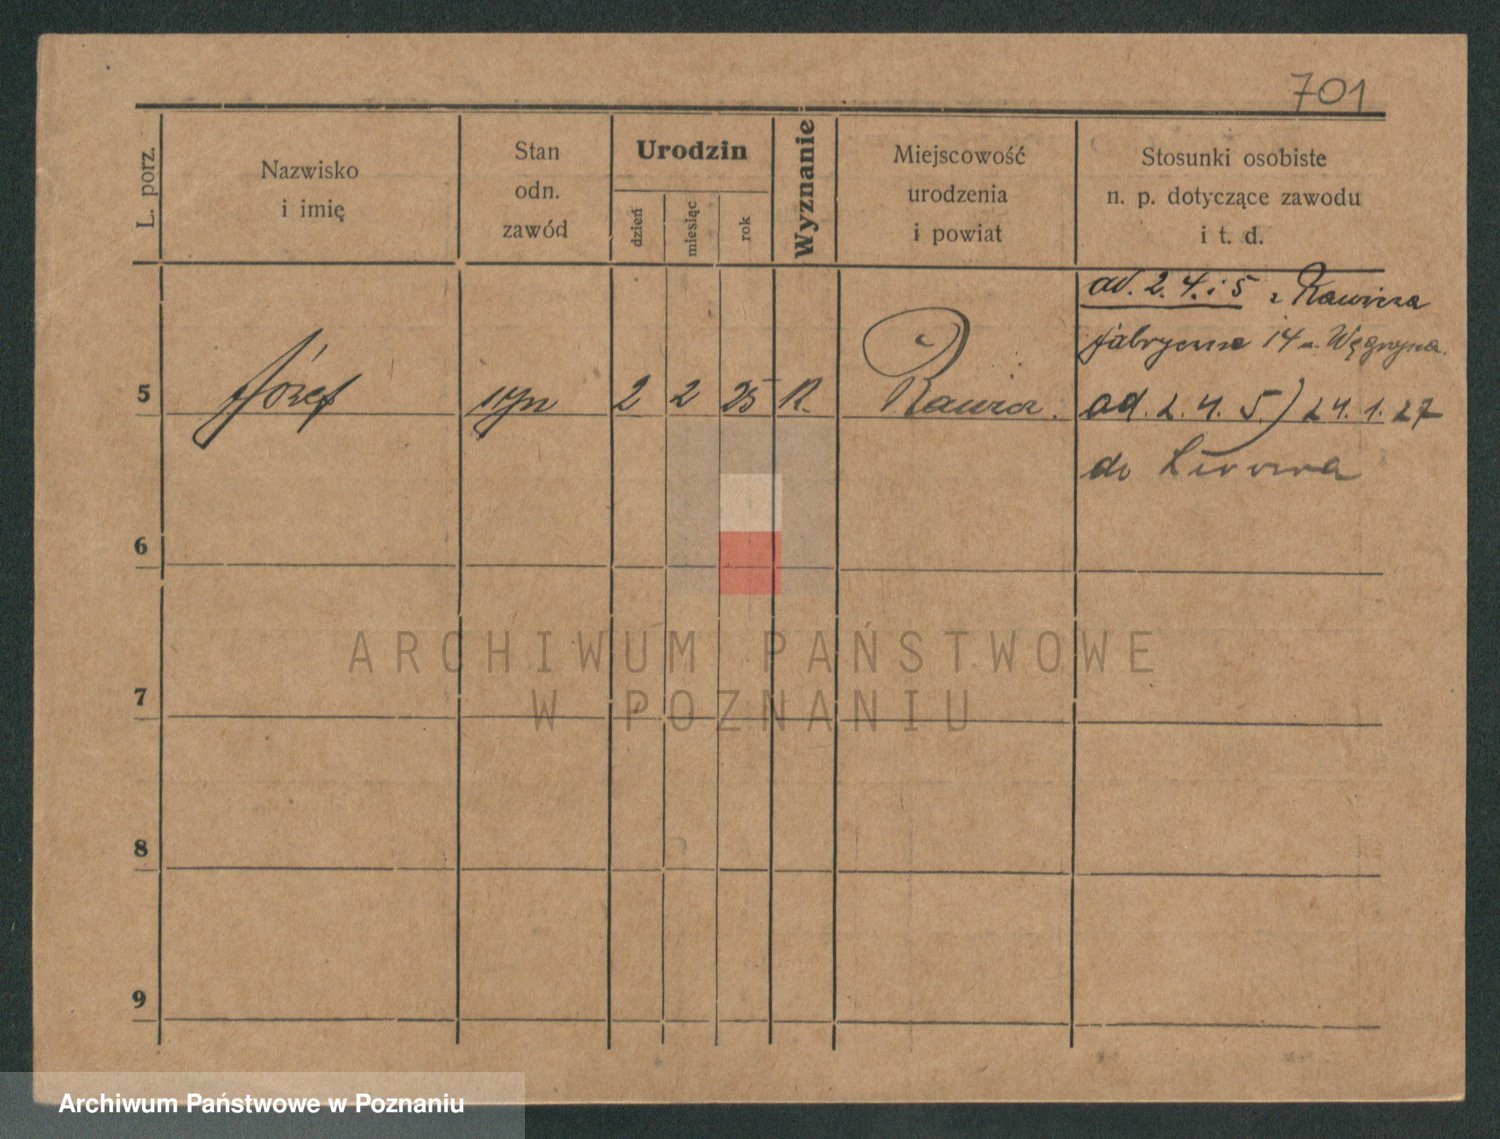 701
L. porz.
Nazwisko
i imię
Stan
odn.
zawód
Urodzin
dzień
miesiąc
rok
Wyznanie
Miejscowość
urodzenia
i powiat
Stosunki osobiste
n. p. dotyczące zawodu
i t. d.
ad. 2. 4. i 5 z Rawicza
fabryczna 14 u. Węgrzyna.
5 Józef syn 2 2 25 R. Rawicz. ad. 2. 4. 5.) 24. 1. 27
do Lwowa
6
7
8
9
ARCHIWUM PAŃSTWOWE
W POZNANIU
Archiwum Państwowe w Poznaniu